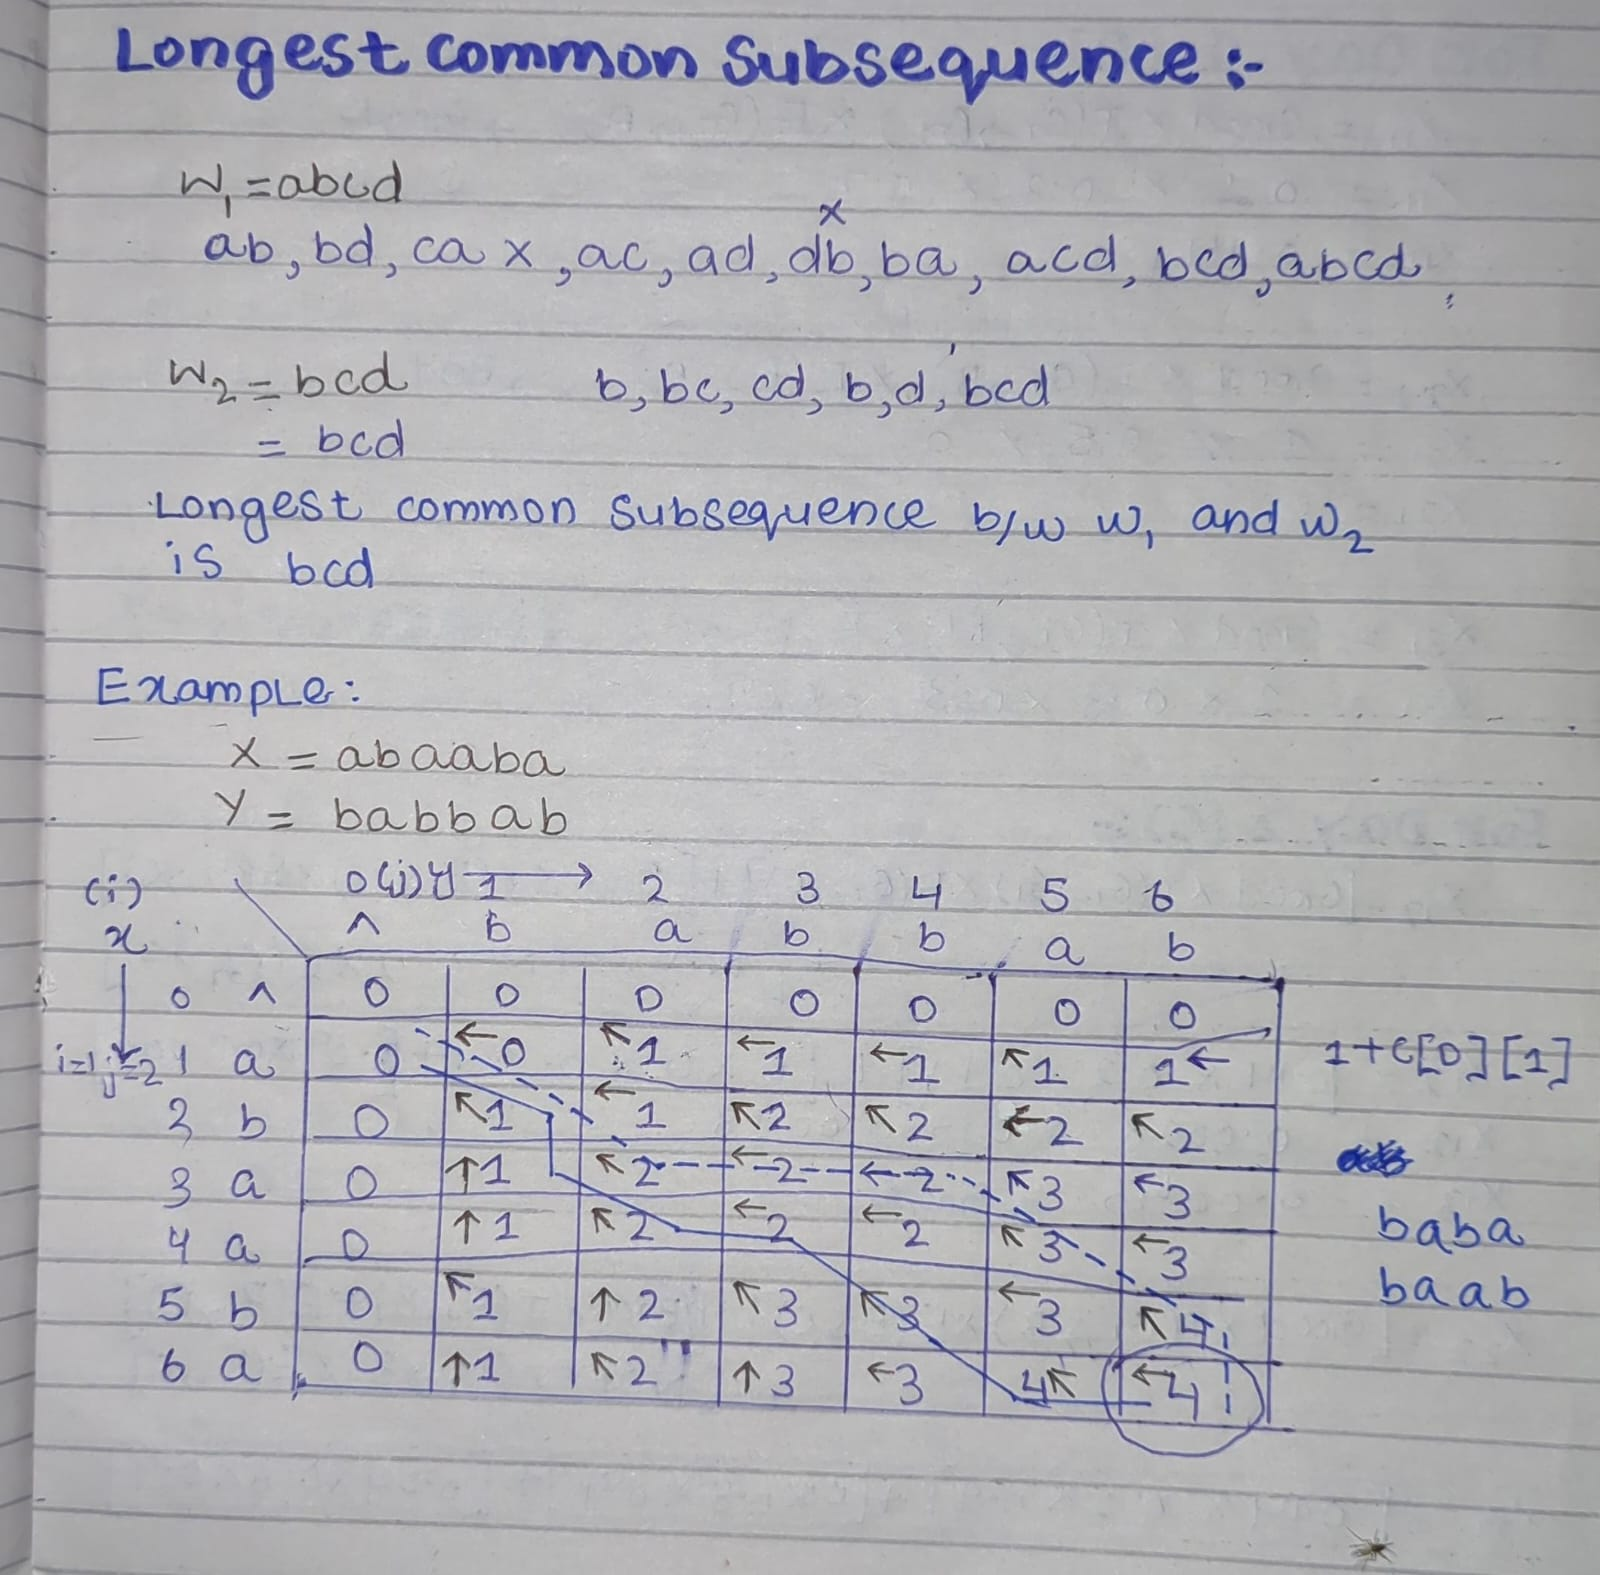 Longest common Subsequence :-
W₁ = abcd
x
ab, bd, ca x, ac, ad, db, ba, acd, bcd, abcd,
W₂ = bcd b, bc, cd, b, d, bcd
= bcd
Longest common subsequence b/w w₁ and w₂
is bcd
Example:
X = abaaba
Y = babbab
(i) 0 (j) y 1 → 2 3 4 5 6
x ^ b a b b a b
0 ^ 0 0 0 0 0 0 0
i=1 j=2 1 a 0 ←0 ↖1 ←1 ←1 ↖1 1← 1+c[0][1]
2 b 0 ↖1 ←1 ↖2 ↖2 ←2 ↖2
3 a 0 ↑1 ↖2 ←2 ←2 ↖3 ←3
4 a 0 ↑1 ↖2 ←2 ←2 ↖3 ←3 baba
5 b 0 ↖1 ↑2 ↖3 ↖3 ←3 ↖4 baab
6 a 0 ↑1 ↖2 ↑3 ←3 4↖ ←4